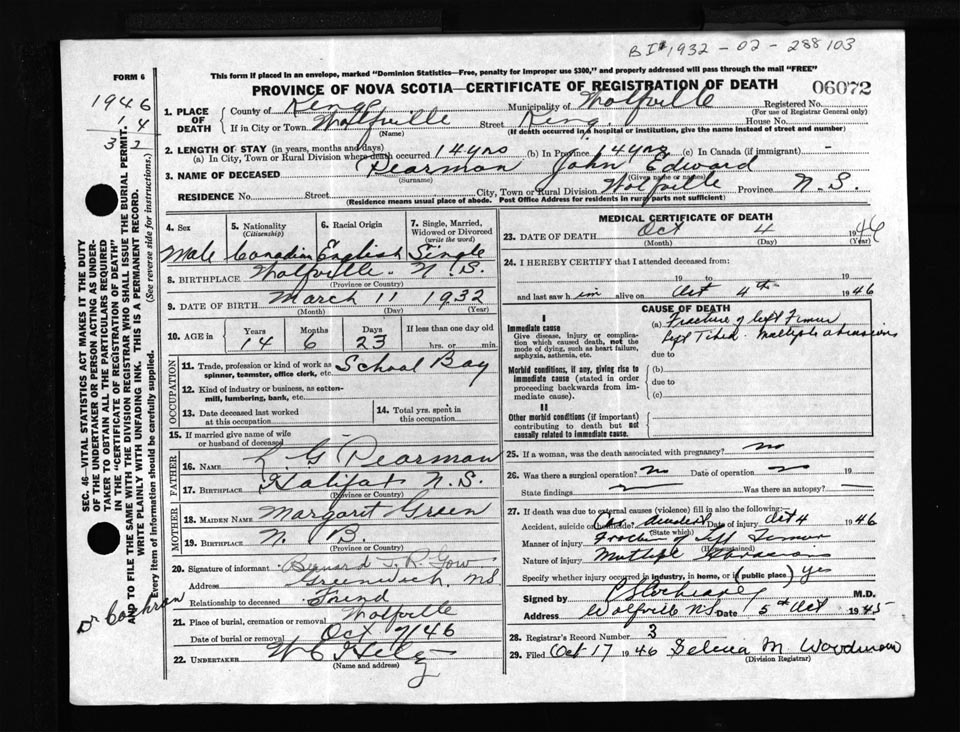 BI# 1932 - 02 - 288103
FORM 6
This form if placed in an envelope, marked "Dominion Statistics—Free, penalty for improper use $300," and properly addressed will pass through the mail "FREE"
PROVINCE OF NOVA SCOTIA—CERTIFICATE OF REGISTRATION OF DEATH
06072
1946
14
32
1. PLACE OF DEATH
County of Kings Municipality of Wolfville Registered No.
(For use of Registrar General only)
If in City or Town Wolfville Street King House No.
(Name) (If death occurred in a hospital or institution, give the name instead of street and number)
2. LENGTH OF STAY (in years, months and days)
(a) In City, Town or Rural Division where death occurred 14 yrs (b) In Province 14 yrs (c) In Canada (if immigrant) -
3. NAME OF DECEASED Pearman John Edward
(Surname) (Given name or names)
RESIDENCE No. Street City, Town or Rural Division Wolfville Province N.S.
(Residence means usual place of abode. Post Office Address for residents in rural parts not sufficient)
4. Sex 5. Nationality (Citizenship) 6. Racial Origin 7. Single, Married, Widowed or Divorced (write the word)
Male Canadian English Single
8. BIRTHPLACE Wolfville - N.S.
(Province or Country)
9. DATE OF BIRTH March 11 1932
(Month) (Day) (Year)
10. AGE in Years Months Days If less than one day old
14 6 23 hrs. or min.
OCCUPATION
11. Trade, profession or kind of work as spinner, teamster, office clerk, etc. School Boy
12. Kind of industry or business, as cotton-mill, lumbering, bank, etc.
13. Date deceased last worked at this occupation
14. Total yrs. spent in this occupation
15. If married give name of wife or husband of deceased
FATHER
16. NAME G Pearman
17. BIRTHPLACE Halifax N.S.
(Province or Country)
MOTHER
18. MAIDEN NAME Margaret Green
19. BIRTHPLACE N. B.
(Province or Country)
20. Signature of informant Bernard R. Gow
Address Greenwich, NS
Relationship to deceased Friend
21. Place of burial, cremation or removal Wolfville
Date of burial or removal Oct 7/46
22. UNDERTAKER W C
(Name and address)
MEDICAL CERTIFICATE OF DEATH
23. DATE OF DEATH Oct 4 1946
(Month) (Day) (Year)
24. I HEREBY CERTIFY that I attended deceased from:
19 to 19
and last saw him alive on Oct 4th 1946
CAUSE OF DEATH
I
Immediate cause
Give disease, injury or complication which caused death, not the mode of dying, such as heart failure, asphyxia, asthenia, etc.
(a) Fracture of left Fimur
left Multiple abrasions
due to
Morbid conditions, if any, giving rise to immediate cause (stated in order proceeding backwards from immediate cause).
(b)
due to
(c)
II
Other morbid conditions (if important) contributing to death but not causally related to immediate cause.
25. If a woman, was the death associated with pregnancy? no
26. Was there a surgical operation? no Date of operation no 19
State findings Was there an autopsy?
27. If death was due to external causes (violence) fill in also the following:
Accident, suicide or homicide? accident Date of injury Oct 4 1946
(State which)
Manner of injury Fracture of left Fimur
(How sustained)
Nature of injury Multiple Abrasions
Specify whether injury occurred in industry, in home, or in (public place) yes
Signed by M.D.
Address Wolfville NS Date 5th Oct 1945
28. Registrar's Record Number 3
29. Filed Oct 17 1946 Selena M. Woodman
(Division Registrar)
SEC. 46—VITAL STATISTICS ACT MAKES IT THE DUTY
OF THE UNDERTAKER OR PERSON ACTING AS UNDERTAKER TO OBTAIN ALL THE PARTICULARS REQUIRED
IN THE "CERTIFICATE OF REGISTRATION OF DEATH"
AND TO FILE THE SAME WITH THE DIVISION REGISTRAR WHO SHALL ISSUE THE BURIAL PERMIT.
WRITE PLAINLY WITH UNFADING INK. THIS IS A PERMANENT RECORD.
Every item of information should be carefully supplied. (See reverse side for instructions.)
Dr Cochran